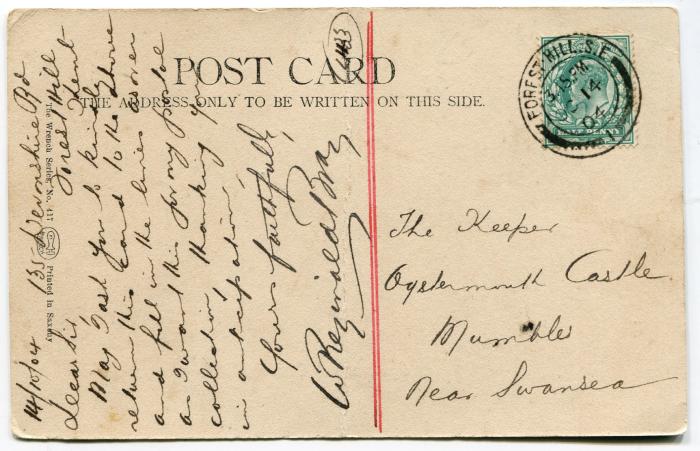 POST CARD
THE ADDRESS ONLY TO BE WRITTEN ON THIS SIDE.
FOREST HILL. S.E.
3.15 PM
OC 14
04
HALF PENNY
The Keeper
Oystermouth Castle
Mumbles
Near Swansea
The Wrench Series No. 417
Printed in Saxony
14/10/04 135 Devonshire Rd
Forest Hill
Dear Sir, Kent
May I ask you to kindly
return this card to the above
and fill in the lines as over
as I want this for my postal
collection, thanking you
in anticipation,
Yours faithfully
W Reginald Bray